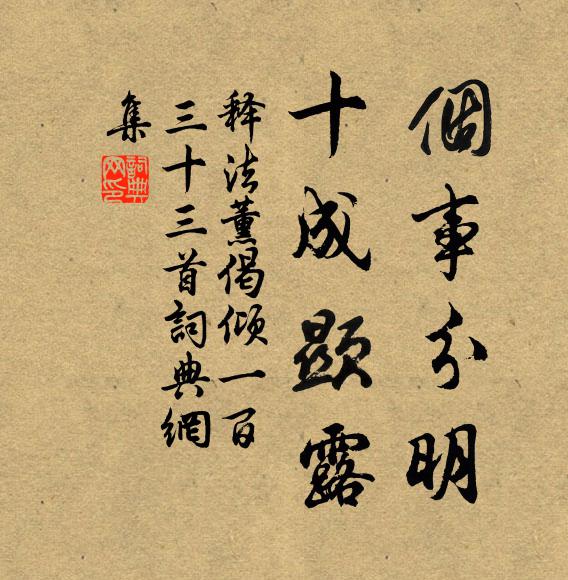 個事分明
十成顯露
释法薰偈倾一百
三十三首詞典網
集
詞典
网印